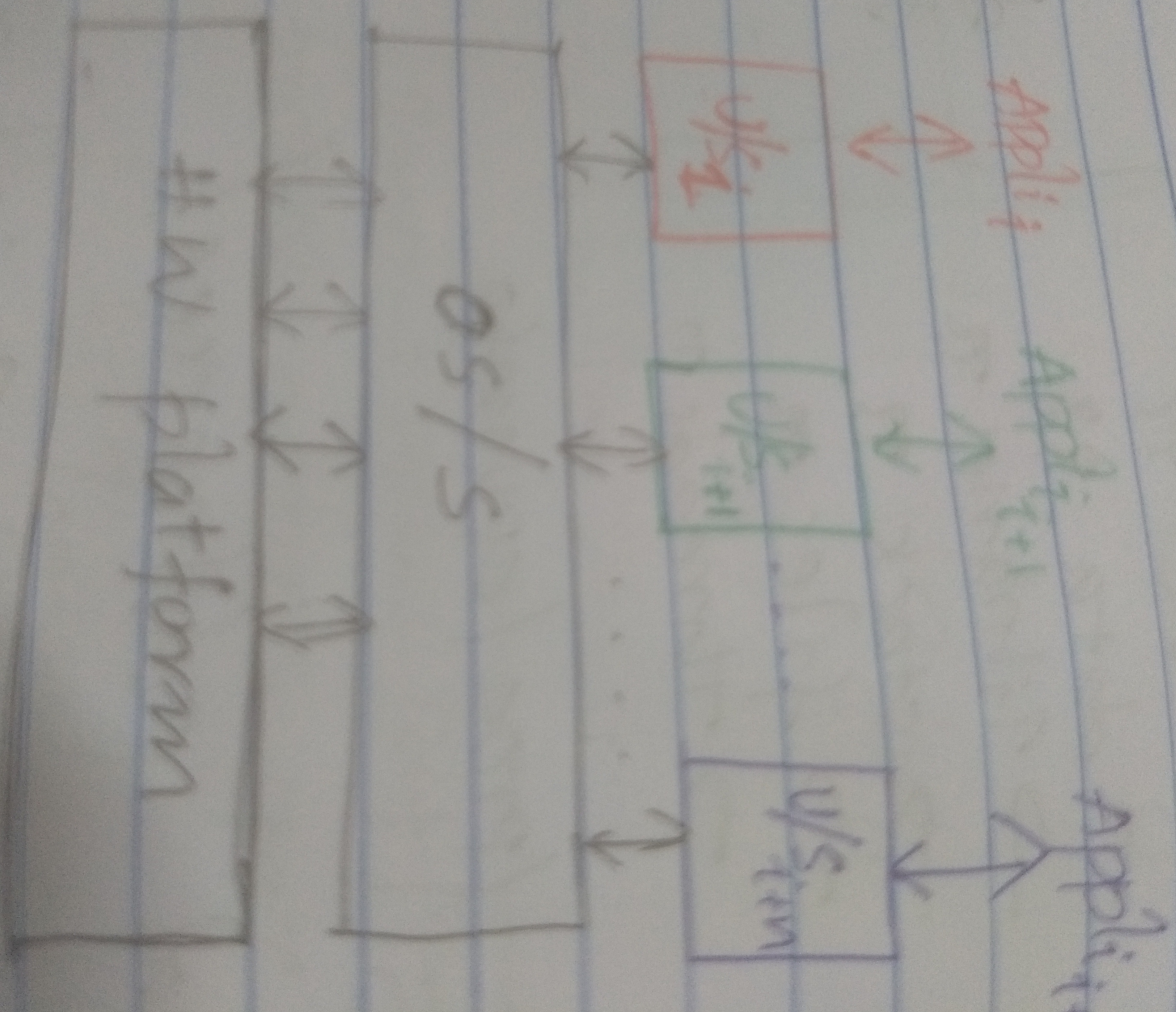 Appli i Appli i+1 Appli i
U/S i U/S i+1 U/S i+n
OS/S
HW platform